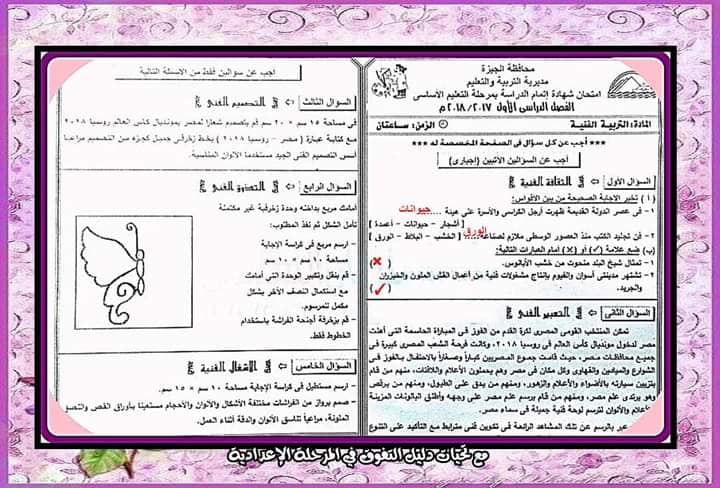 محافظة الجيزة
مديرية التربية والتعليم
امتحان شهادة إتمام الدراسة بمرحلة التعليم الأساسى
الفصل الدراسى الأول ٢٠١٨/٢٠١٧ م
المادة: التربية الفنية
الزمن: ساعتان
*** أجب عن كل سؤال فى الصفحة المخصصة له ***
أجب عن السؤالين الآتيين (إجبارى)
السؤال الأول
الثقافة الفنية
(أ) تخير الإجابة الصحيحة من بين الأقواس:
١- فى عصر الدولة القديمة ظهرت أرجل الكراسى والأسرة على هيئة ..... حيوانات
[ أشجار - حيوانات - أعمدة ]
٢- فن تجليد الكتب منذ العصور الوسطى ملازم لصناعة..... الورق [ الخشب - البلاط - الورق ]
(ب) ضع علامة (✓) أو (×) أمام العبارات التالية:
١- تمثال شيخ البلد منحوت من خشب الأبانوس. (×)
٢- تشتهر مدينتى أسوان والفيوم بإنتاج مشغولات فنية من أعمال القش الملون والخيزران
والجريد. (✓)
السؤال الثانى
التعبير الفنى
تمكن المنتخب القومى المصرى لكرة القدم من الفوز فى المباراة الحاسمة التى أهلت
مصر لدخول مونديال كأس العالم فى روسيا ٢٠١٨، وكانت فرحة الشعب المصرى كبيرة فى
جميع محافظات مصر، حيث قامت جموع المصريين كباراً وصغاراً بالاحتفال بالفوز فى
الشوارع والميادين والقهاوى وكل مكان فى مصر وهم يحملون الأعلام واللافتات، منهم من قام
بتزيين سيارته بالأضواء والأعلام والزهور، ومنهم من يدق على الطبول، ومنهم من يرقص
وهو يرتدى علم مصر، ومنهم من قام برسم علم مصر على وجهه وأطلق البالونات المزينة
بالأعلام والألوان لترسم لوحة فنية جميلة فى سماء مصر.
عبر بالرسم عن تلك المشاهد الرائعة فى تكوين فنى مترابط مع التأكيد على التنوع
أجب عن سؤالين فقط من الأسئلة التالية
السؤال الثالث
التصميم الفنى
فى مساحة ١٥ سم × ٢٠ سم قم بتصميم شعاراً لمصر بمونديال كأس العالم روسيا ٢٠١٨
مع كتابة عبارة ( مصر - روسيا ٢٠١٨ ) بخط زخرفى جميل كجزء من التصميم مراعياً
أسس التصميم الفنى الجيد مستخدماً الألوان المناسبة.
السؤال الرابع
التذوق الفنى
أمامك مربع بداخله وحدة زخرفية غير مكتملة
تأمل الشكل ثم نفذ المطلوب:
- ارسم مربع فى كراسة الإجابة
مساحة ١٠ سم × ١٠ سم
- قم بنقل وتكبير الوحدة التى أمامك
مع استكمال النصف الآخر بشكل
مكمل للمرسوم.
- قم بزخرفة أجنحة الفراشة باستخدام
الخطوط فقط.
السؤال الخامس
الأشغال الفنية
- ارسم مستطيل فى كراسة الإجابة مساحة ١٠ سم × ١٥ سم.
- صمم برواز من الفراشات مختلفة الأشكال والألوان والأحجام مستعيناً بأوراق القص واللصق
الملونة، مراعياً تناسق الألوان والدقة أثناء العمل.
مع تحيات دليل التفوق في المرحلة الإعدادية